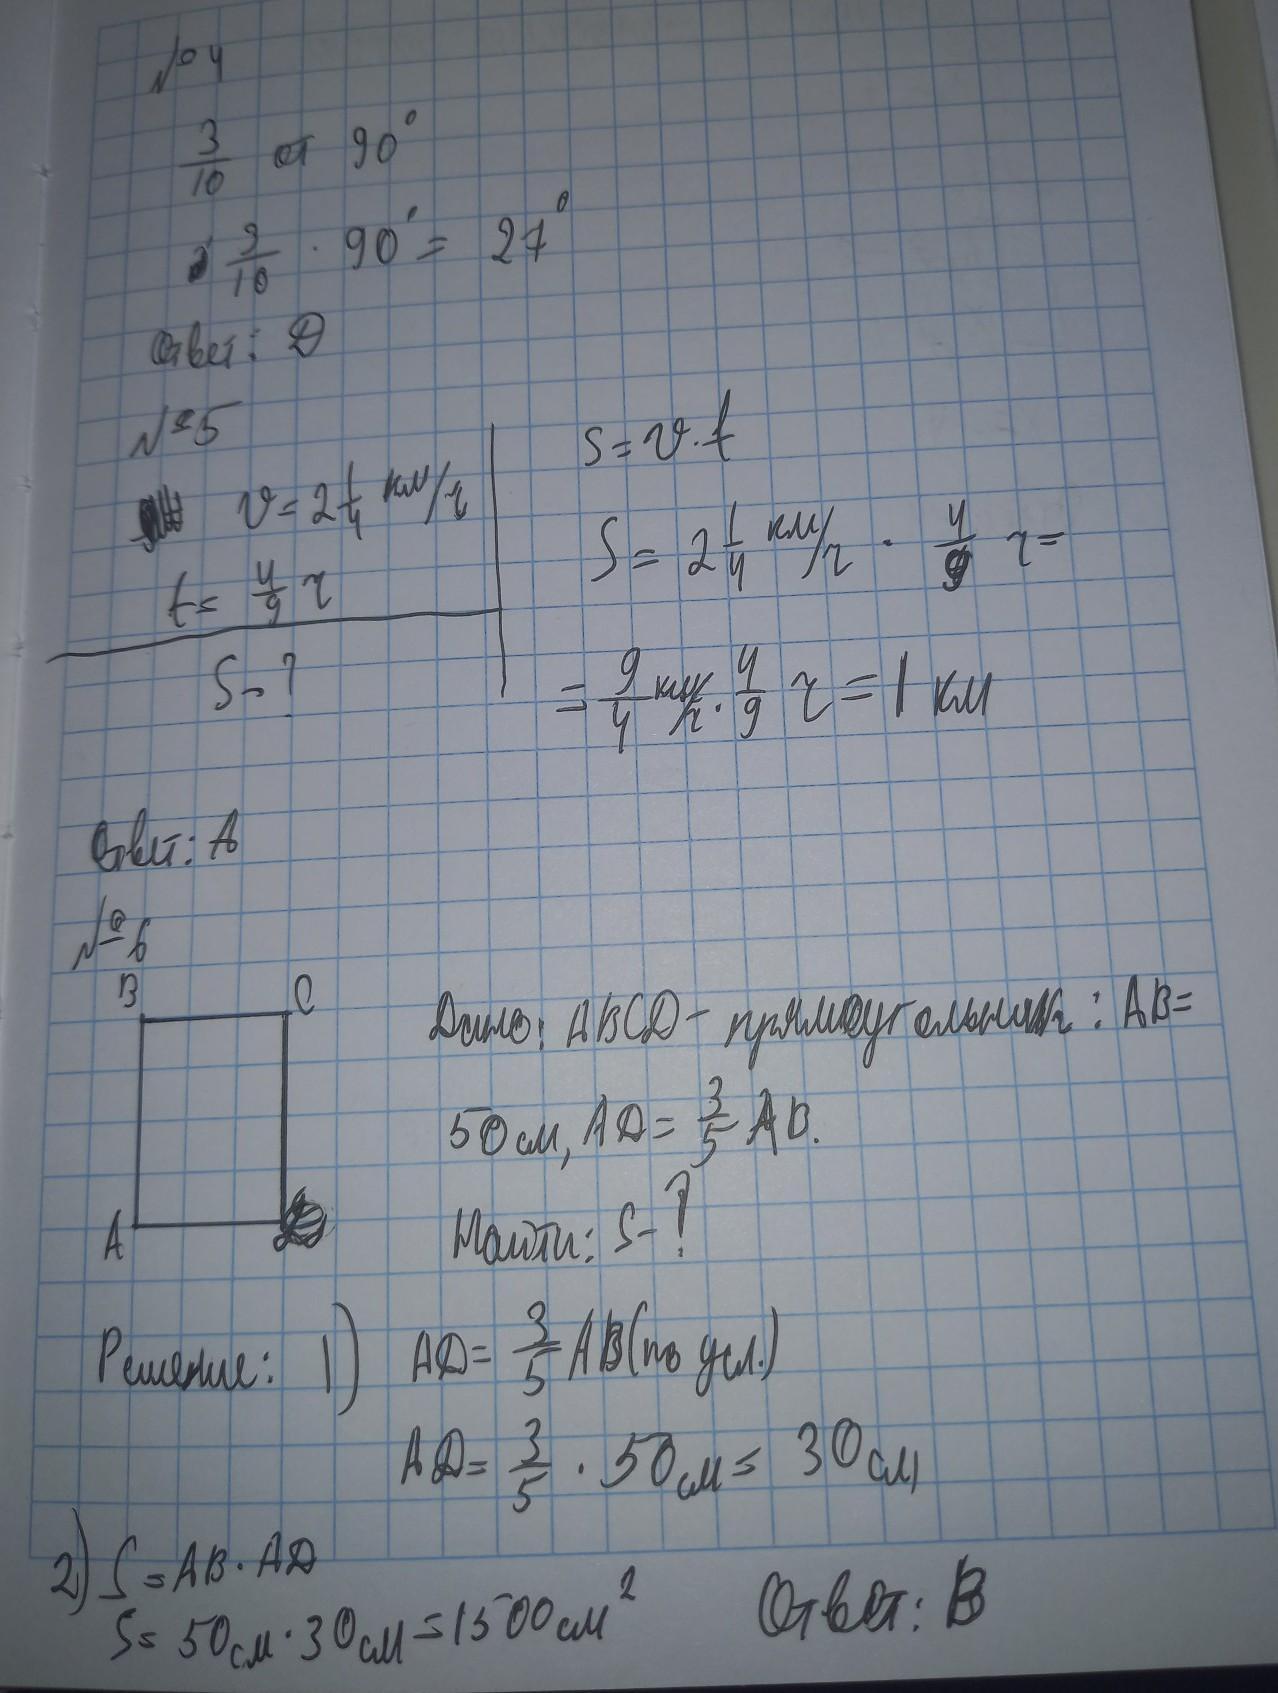 № 4
3/10 от 90°
3/10 · 90° = 27°
Ответ: D
№ 5
v = 2 1/4 км/ч
t = 4/9 ч
S - ?
S = v · t
S = 2 1/4 км/ч · 4/9 ч =
= 9/4 км/ч · 4/9 ч = 1 км
Ответ: A
№ 6
B C
A
Дано: ABCD - прямоугольник: AB =
50 см, AD = 3/5 AB.
Найти: S - ?
Решение: 1) AD = 3/5 AB (по усл.)
AD = 3/5 · 50 см = 30 см
2) S = AB · AD
S = 50 см · 30 см = 1500 см²
Ответ: B